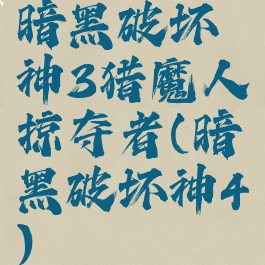 暗黑破坏
神3猎魔人
掠夺者(暗
黑破坏神4
)